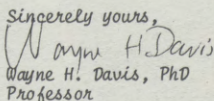 Sincerely yours,
Wayne H. Davis
Wayne H. Davis, PhD
Professor